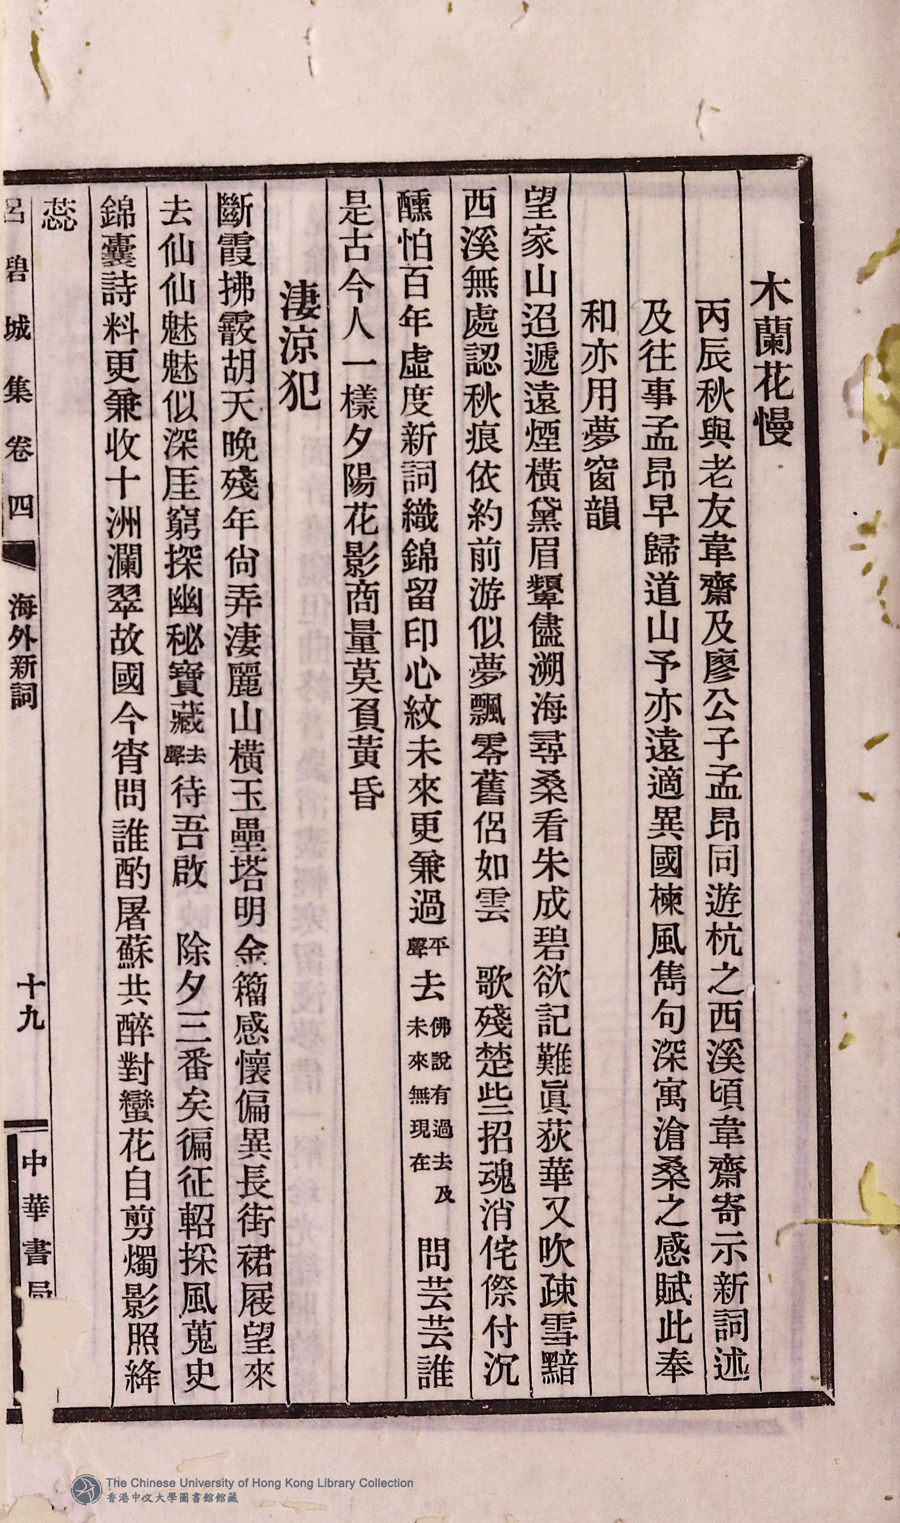 木蘭花慢
丙辰秋與老友韋齋及廖公子孟昂同遊杭之西溪頃韋齋寄示新詞述
及往事孟昂早歸道山予亦遠適異國楝風雋句深寓滄桑之感賦此奉
和亦用夢窗韻
望家山迢遞遠煙橫黛眉顰儘溯海尋桑看朱成碧欲記難眞荻華又吹疎雪黯
西溪無處認秋痕依約前游似夢飄零舊侶如雲 歌殘楚些招魂消侘傺付沉
醺怕百年虛度新詞織錦留印心紋未來更兼過平聲去佛說有過去及未來無現在 問芸芸誰
是古今人一樣夕陽花影商量莫負黃昏
淒涼犯
斷霞拂霰胡天晚殘年尙弄淒麗山橫玉壘塔明金籀感懷偏異長街裙屐望來
去仙仙魅魅似深厓窮探幽秘寶藏去聲待吾啟 除夕三番矣徧征軺採風蒐史
錦囊詩料更兼收十洲瀾翠故國今宵問誰酌屠蘇共醉對蠻花自剪燭影照絳
蕊
呂碧城集卷四 海外新詞 十九 中華書局
The Chinese University of Hong Kong Library Collection
香港中文大學圖書館館藏